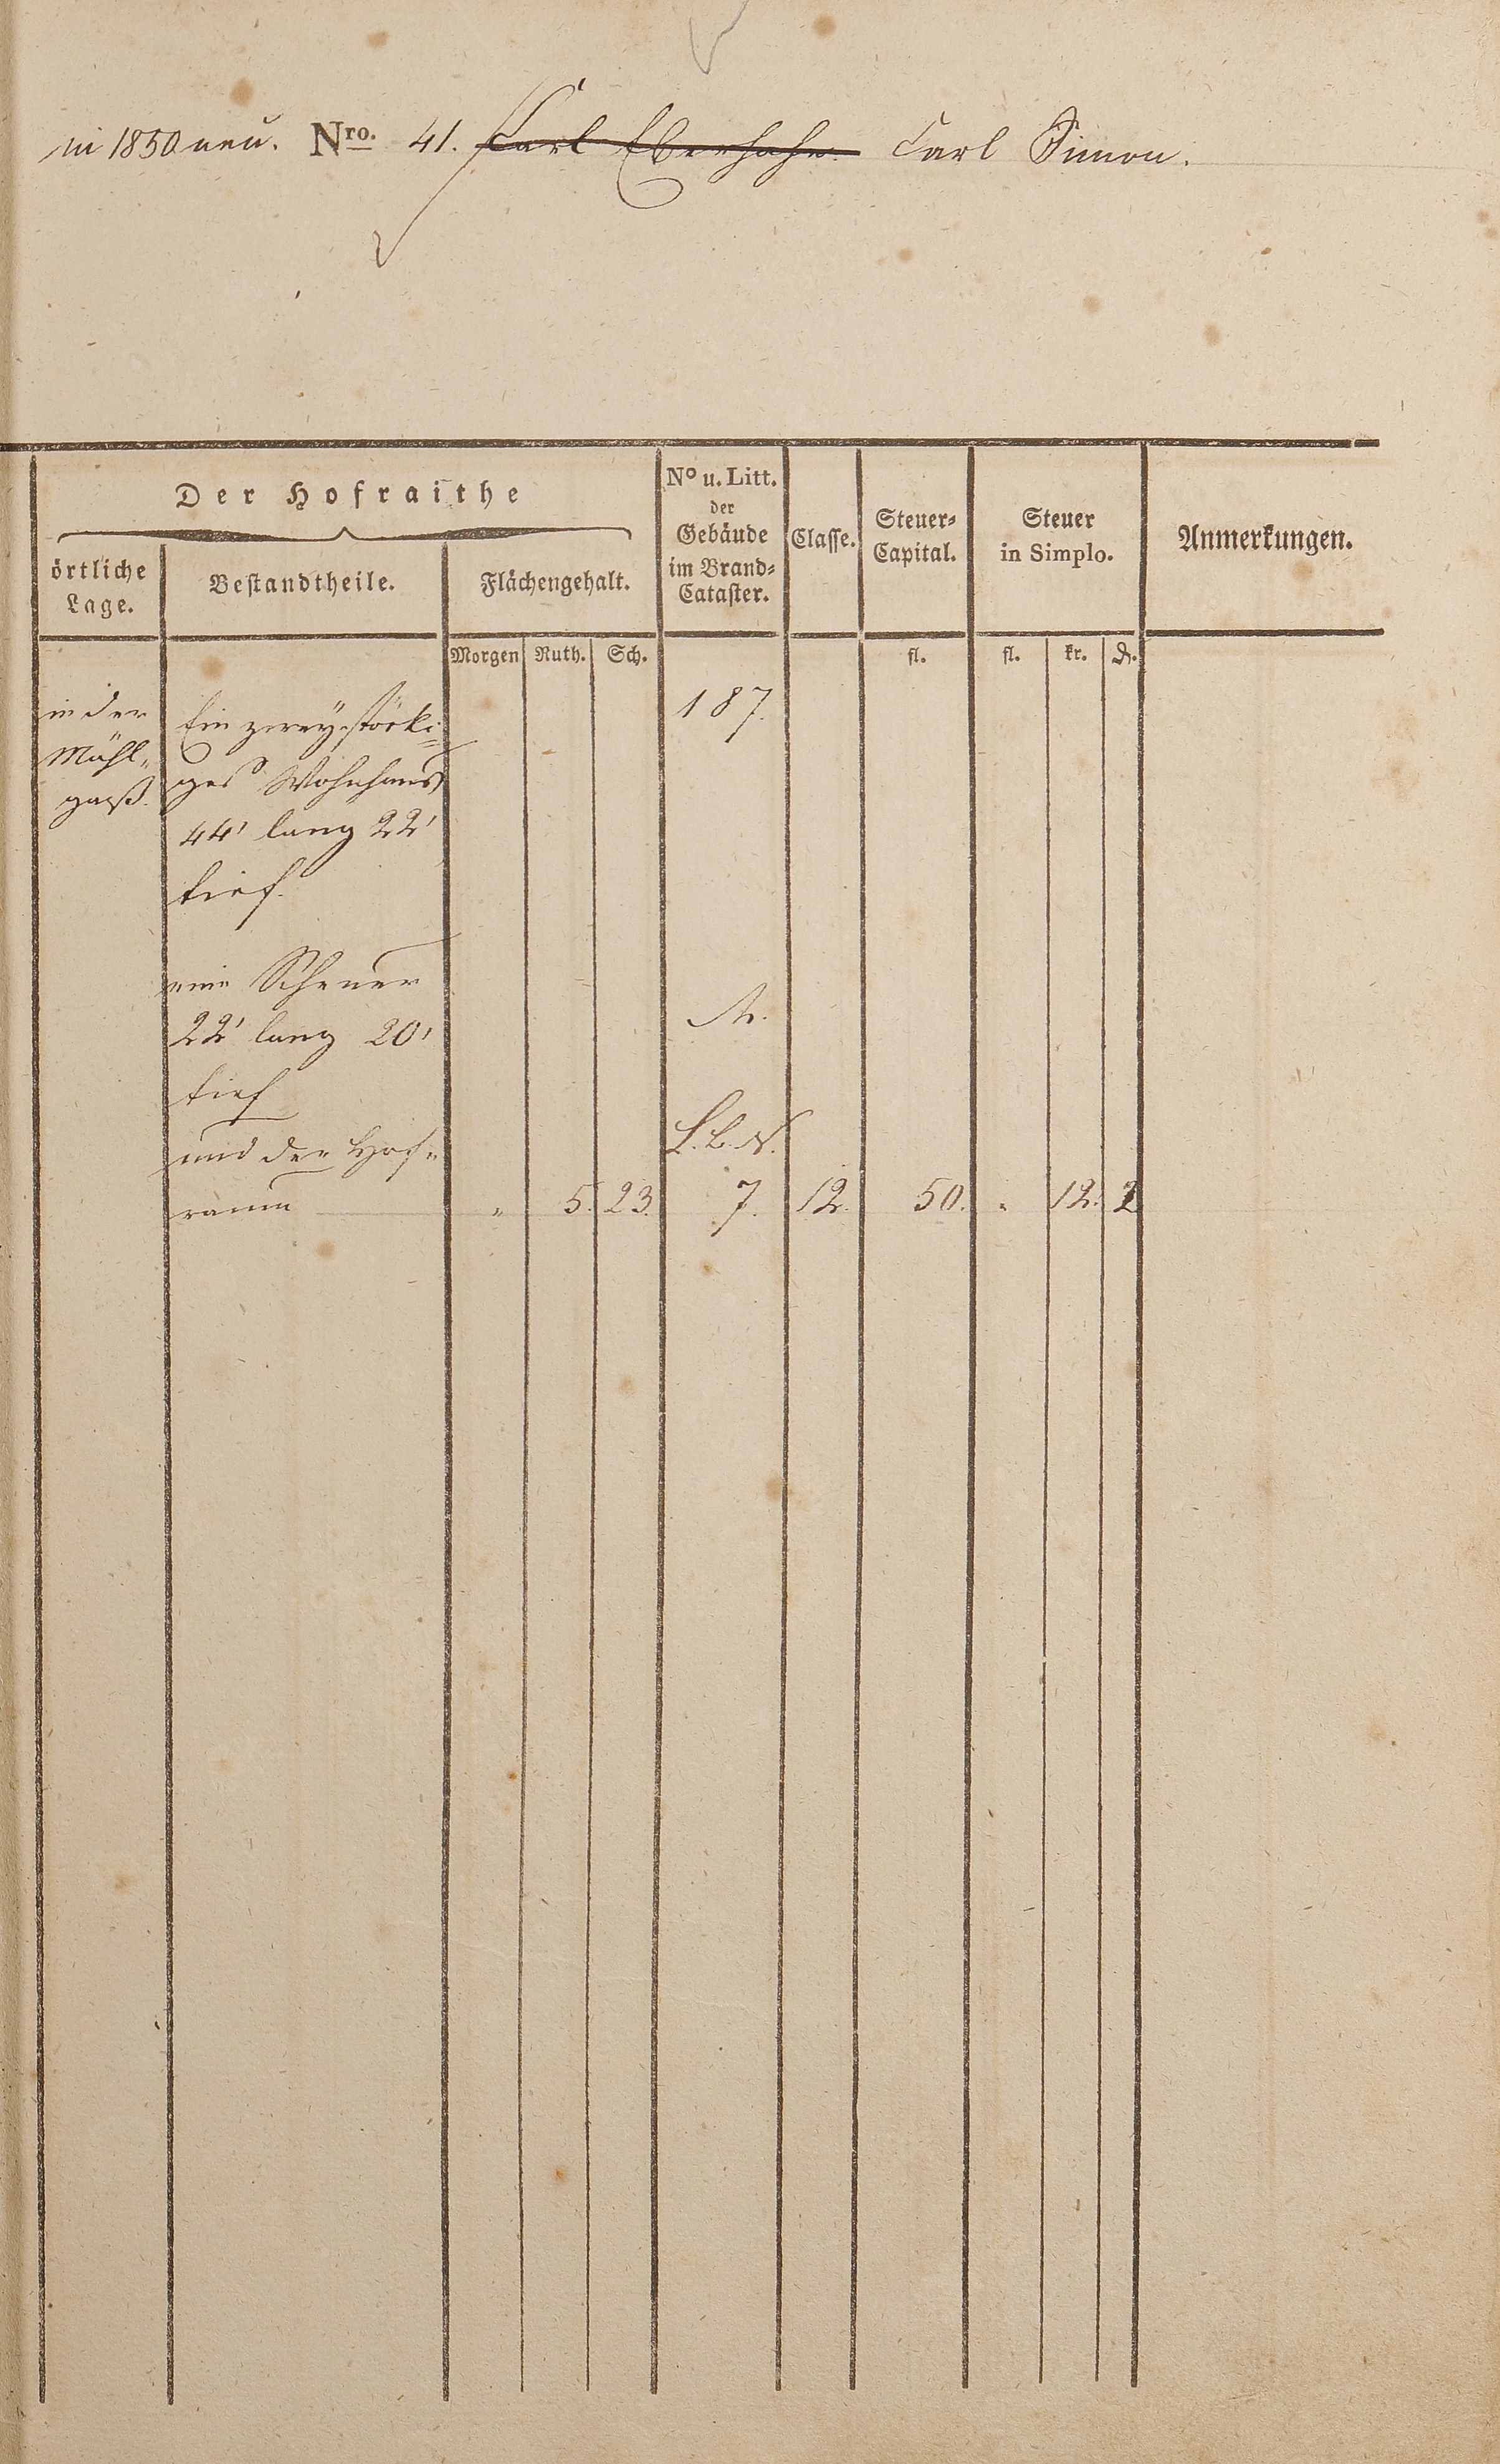 in 1850 neu. Nro. 41. Carl Eberhahn. Carl Simon.
Der Hofraithe
örtliche
Lage.
Bestandtheile.
Flächengehalt.
No u. Litt.
der
Gebäude
im Brand-
Cataster.
Classe.
Steuer-
Capital.
Steuer
in Simplo.
Anmerkungen.
Morgen Ruth. Sch. fl. fl. kr. ₰.
in der
Mühl-
gaß.
Ein zweystöcki-
ges Wohnhaus
44' lang 22'
tief.
187.
eine Scheuer
22' lang 20'
tief
A.
und der Hof-
raum
L. b. N.
" 5. 23. 7. 12. 50. " 12. 2